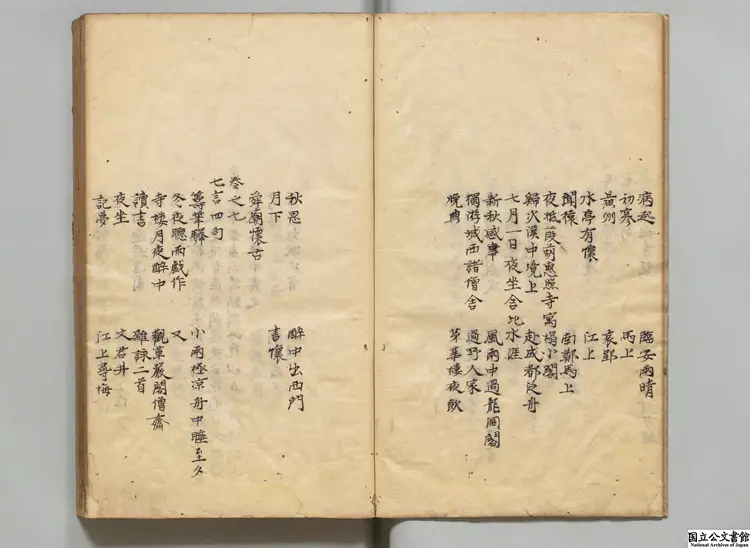 病起　臨安雨晴
初寒　馬上
黃州　哀郢
水亭有懷　江上
聞猿　南鄭馬上
夜抵葭萌惠照寺寓榻小閣
歸次漢中境上　赴成都泛舟
七月一日夜坐舍北水涯
新秋感事　風雨中過龍洞閣
獨游城西諸僧舍　過野人家
晚興　芳華樓夜飲
秋思　醉中出西門
月下　書懷
舜廟懷古
卷之七
七言四句
籌筆驛　小雨極凉舟中睡至夕
冬夜聽雨戲作　又
寺樓月夜醉中　觀華嚴閣僧齋
讀書　雜詠二首
夜坐　文君井
記夢　江上尋梅
国立公文書館
National Archives of Japan